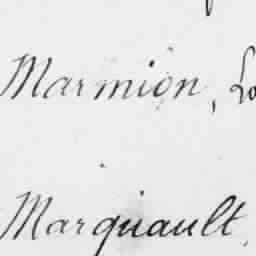 Marmion,
Marquault,